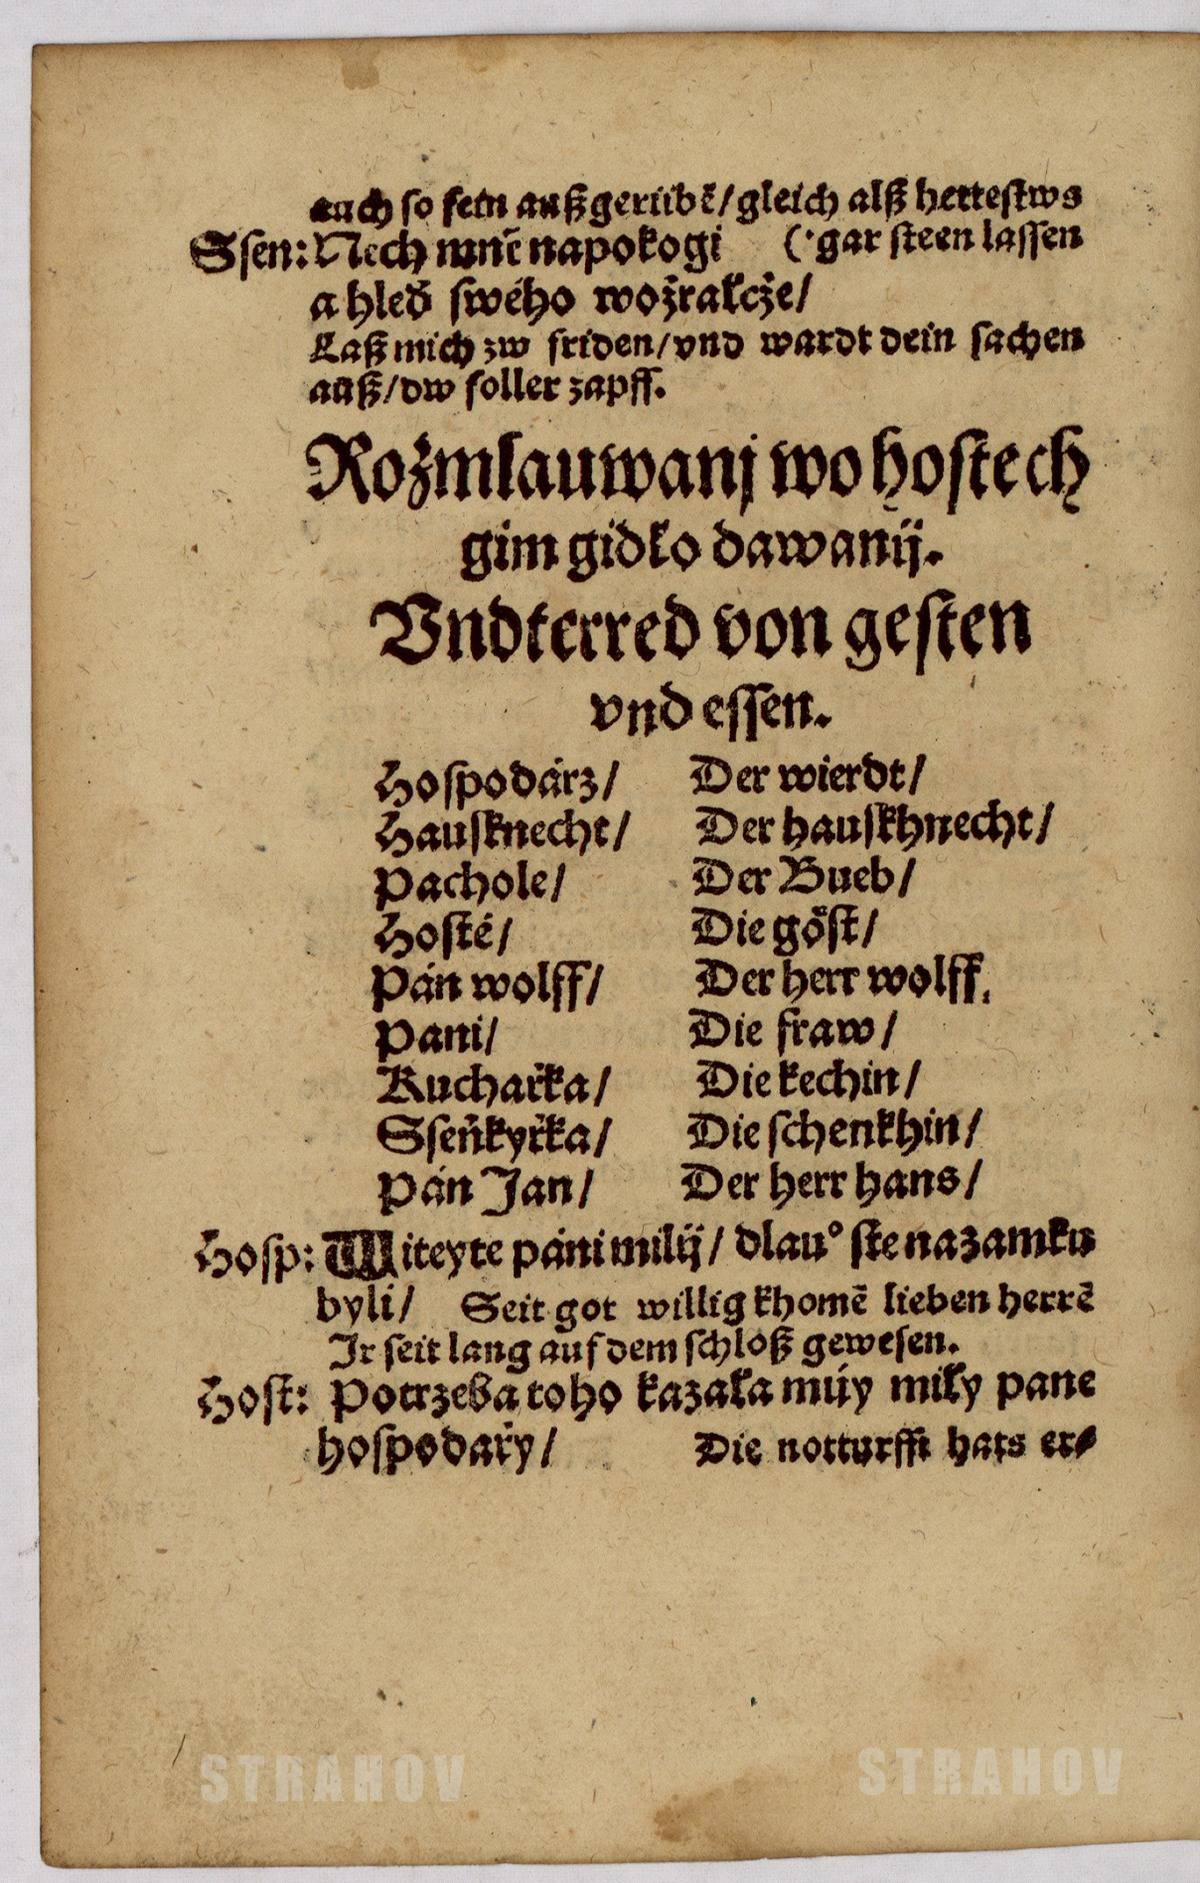 auch so fein außgeriibẽ/gleich alß hettestws
Ssen: Nech mnė napokogi (gar steen lassen
a hleď swého wožralcže/
Laß mich zw friden/vnd wardt dein sachen
auß/dw foller zapff.
Rožmlauwanj wo hostech
gim gidlo dawanij.
Vndterred von gesten
vnd essen.
Hospodárz/ Der wierdt/
Hausknecht/ Der hauskhnecht/
Pachole/ Der Bueb/
Hosté/ Die göst/
Pán wolff/ Der herr wolff.
Pani/ Die fraw/
Kuchařka/ Die kechin/
Sseňkyřka/ Die schenkhin/
Pán Jan/ Der herr hans/
Hosp: Witeyte páni milij/ dlau° ste na zamku
byli/ Seit got willig khomẽ lieben herrẽ
Ir seit lang auf dem schloß gewesen.
Host: Potrzeba toho kazala múy mily pane
hospodařy/ Die notturfft hats er⸗
STRAHOV STRAHOV